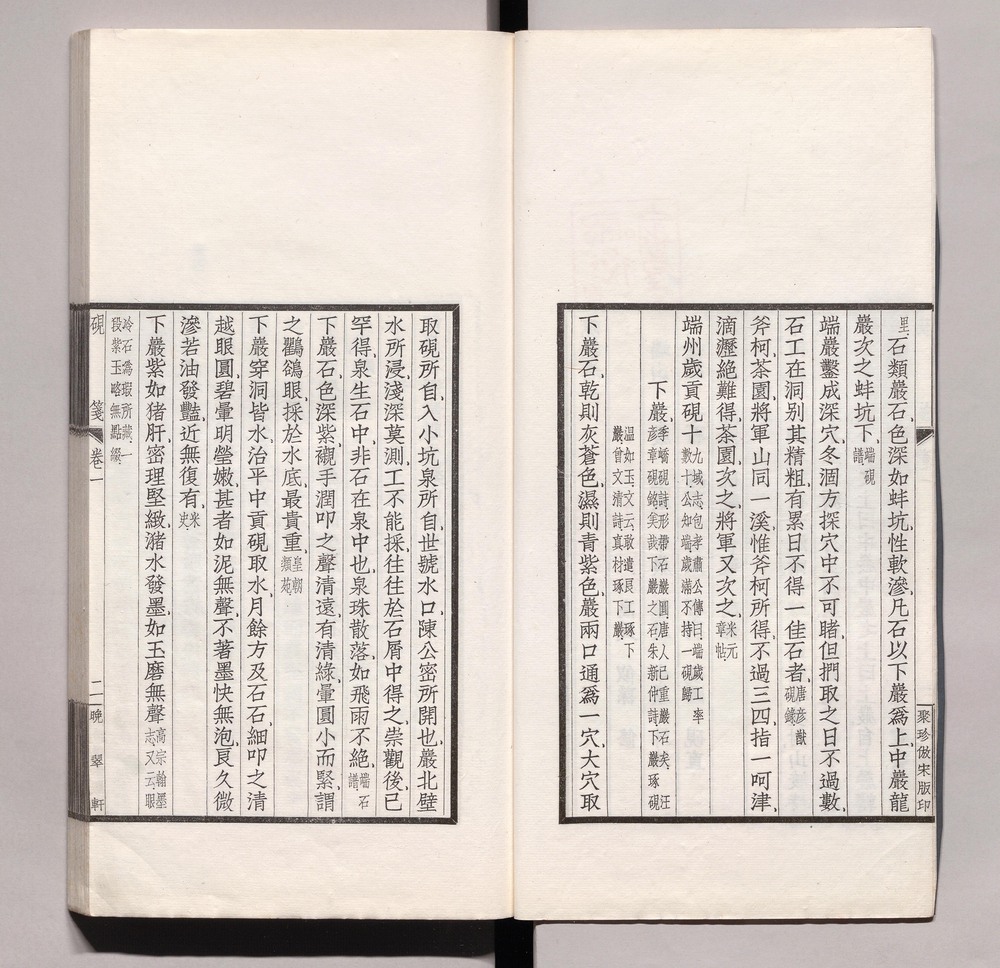 里石類嚴石色深如蚌坑性軟滲凡石以下巖爲上中巖龍
巖次之蚌坑下端硯譜
端巖鑿成深穴冬涸方探穴中不可睹但捫取之日不過數
石工在洞別其精粗有累日不得一佳石者唐彥猷硯錄
斧柯茶園將軍山同一溪惟斧柯所得不過三四指一呵津
滴瀝絕難得茶園次之將軍又次之米元章帖
端州歲貢硯十九域志包孝肅公傳曰端歲工率數十公知端歲滿不持一硯歸
下巖季嶠硯詩形帶石巖圓唐人已重巖石矣汪彥章硯銘矣哉下巖之石朱新仲詩下巖琢硯
温如玉文云敢遣良工琢下巖曾文清詩真材琢下巖
下巖石乾則灰蒼色濕則青紫色巖兩口通爲一穴大穴取
聚珍倣宋版印
取硯所自入小坑泉所自世號水口陳公密所開也巖北壁
水所浸淺深莫測工不能採往往於石屑中得之崇觀後已
罕得泉生石中非石在泉中也泉珠散落如飛雨不絕端石譜
下巖石色深紫襯手潤叩之聲清遠有清綠暈圓小而緊謂
之鸜鵒眼採於水底最貴重皇朝類苑
下巖穿洞皆水治平中貢硯取水月餘方及石石細叩之清
越眼圓碧暈明瑩嫩甚者如泥無聲不著墨快無泡良久微
滲若油發豔近無復有米史
下巖紫如猪肝密理堅緻瀦水發墨如玉磨無聲高宗翰墨志又云眼
泠石爲瑕所藏一段紫玉略無點綴
硯箋 卷一 二 晚翠軒